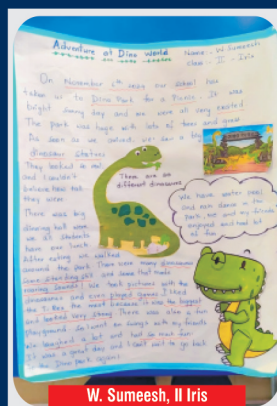 Adventure at Dino World
Name - W. Sumeesh
class - II - Iris
On November 6th 2024 our school has
taken us to Dino Park for a Picnic. It was
bright sunny day and we were all very excited
The park was huge with lots of trees and grass
As soon as we entered, we saw a big
dinosaur statues
They looked so real
and I couldn't
believe how tall
they were
There was big
dinning hall were
we all students
have our lunch
There are so
different dinosaures
After eating we walked
around the park. There were many dinosaurs
Some standing still and some that made
roaring sounds! We took pictures with the
dinosaures and even played games I liked
the T. Rex the most because it was the biggest
and looked very strong There was also a fun
playground So I went on swings with my friends
We laughed a lot and had so much fun!
It was a great day and I can't wait to go back
to the Dino Park again!
We have water pool
and rain dance in the
park, me and my friends
enjoyed and had lot
of fun
W. Sumeesh, II Iris